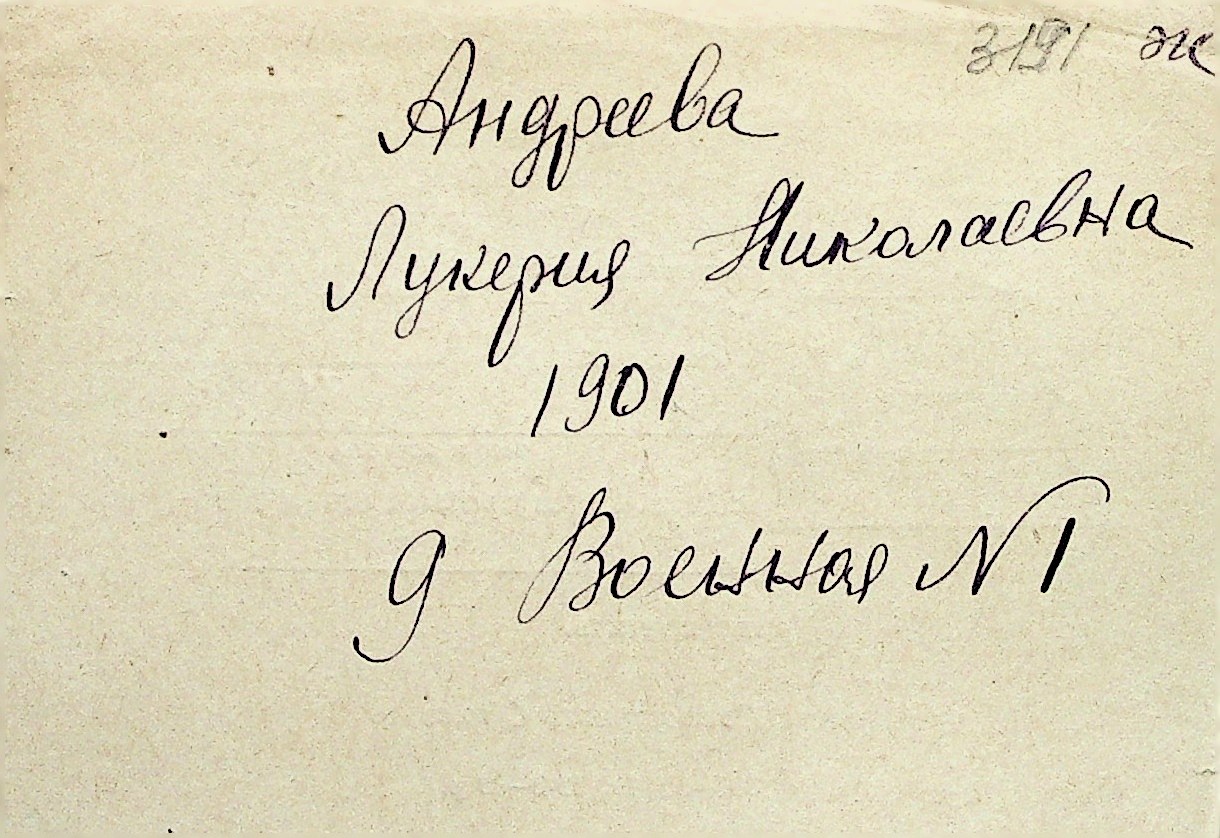 ж
Андреева
Лукерия Николаевна
1901
9 Военная N 1